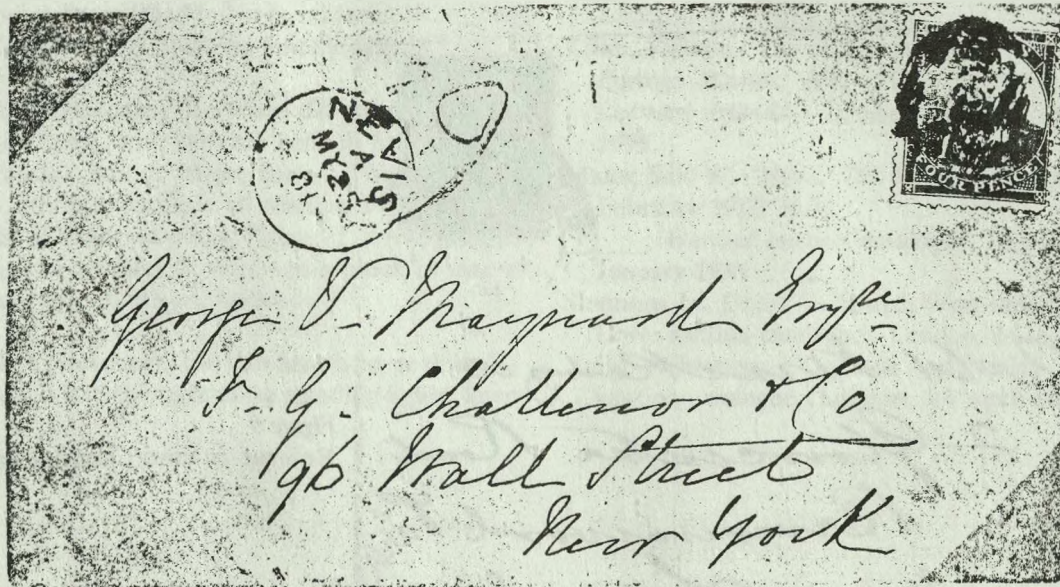 NEVIS
A
MY 25
81
FOUR PENCE
George V- Maynard Esqre
F. G. Challenor & Co
96 Wall Street
New York